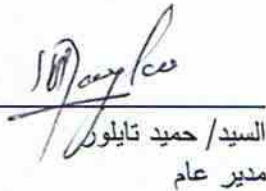 السيد/ حميد تايلور
مدير عام